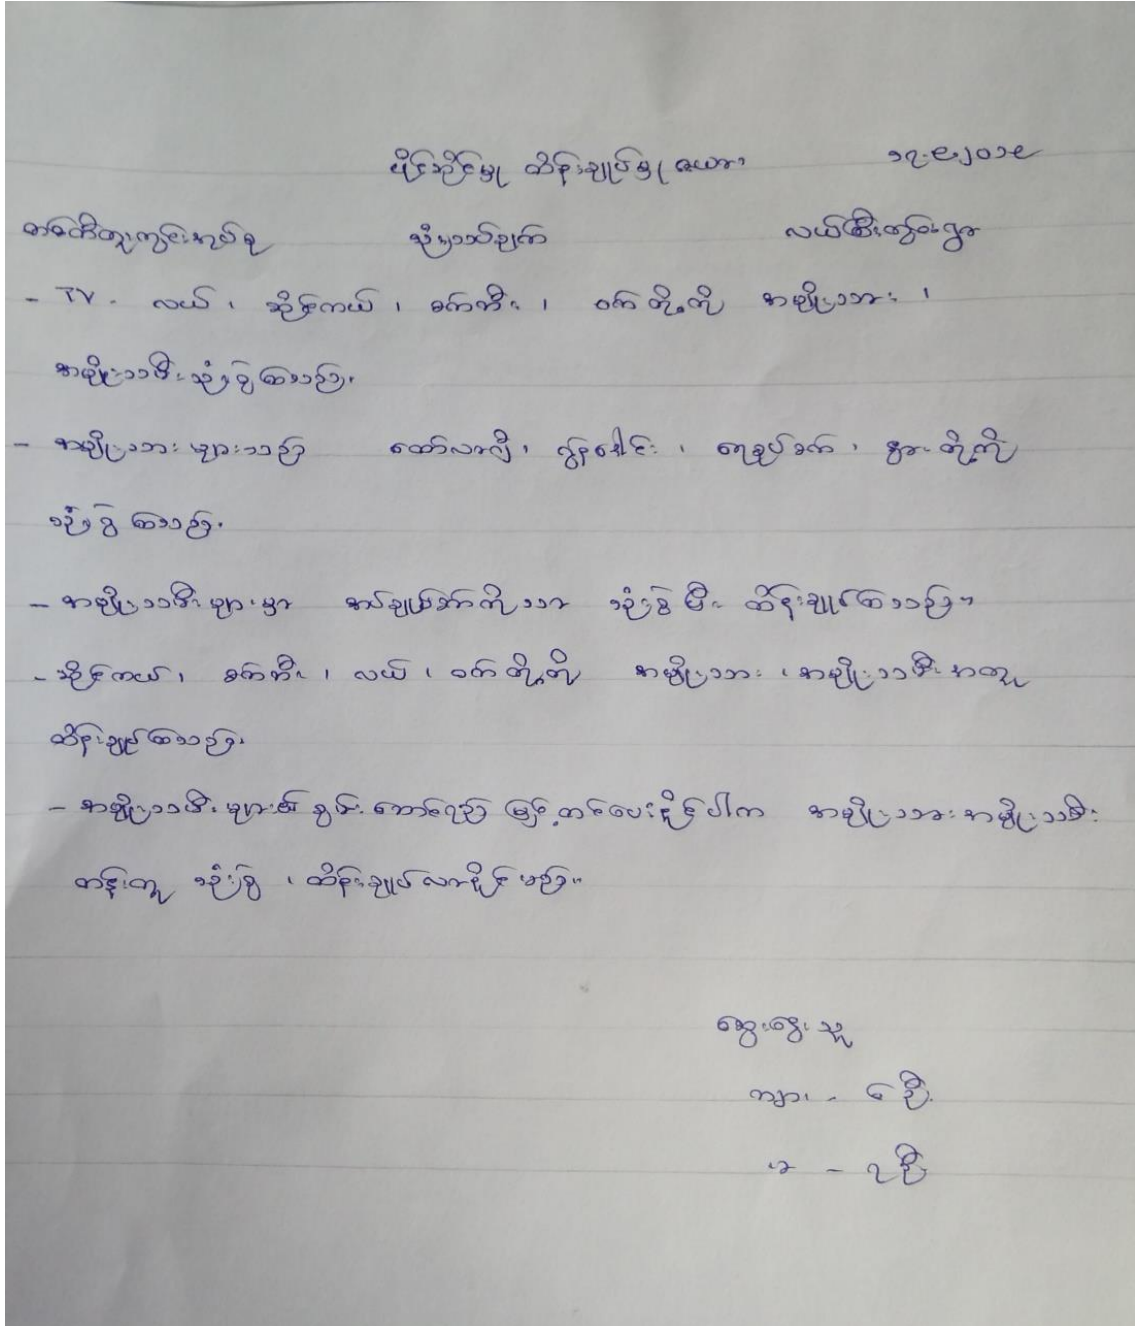 ပိုင်ဆိုင်မှု ထိန်းချုပ်မှု ဇယား ၁၇.၉.၂၀၁၉
သုံးသပ်ချက် လယ်ကြီးကွင်းရွာ
- TV ၊ လယ် ၊ ဆိုင်ကယ် ၊ စက်ဘီး ၊ ဝက် တို့ကို အမျိုးသား ၊
အမျိုးသမီး သုံးစွဲကြသည်။
- အမျိုးသား များသည် ထော်လာဂျီ ၊ ဂွန်ဒေါင်း ၊ ရေစုပ်စက် ၊ နွား တို့ကို
သုံးစွဲ ကြသည်။
- အမျိုးသမီး များမှာ အပ်ချုပ်စက်ကိုသာ သုံးစွဲ ပြီး ထိန်းချုပ်ကြသည်။
- ဆိုင်ကယ် ၊ စက်ဘီး ၊ လယ် ၊ ဝက် တို့ကို အမျိုးသား ၊ အမျိုးသမီး အတူ
ထိန်းချုပ်ကြသည်။
- အမျိုးသမီး များ၏ စွမ်းဆောင်ရည် မြှင့်တင်ပေးနိုင်ပါက အမျိုးသား အမျိုးသမီး
တန်းတူ သုံးစွဲ ၊ ထိန်းချုပ် လာနိုင် မည်။
ဆွေးနွေးသူ
ကျား - ၆ ဦး
မ - ၇ ဦး